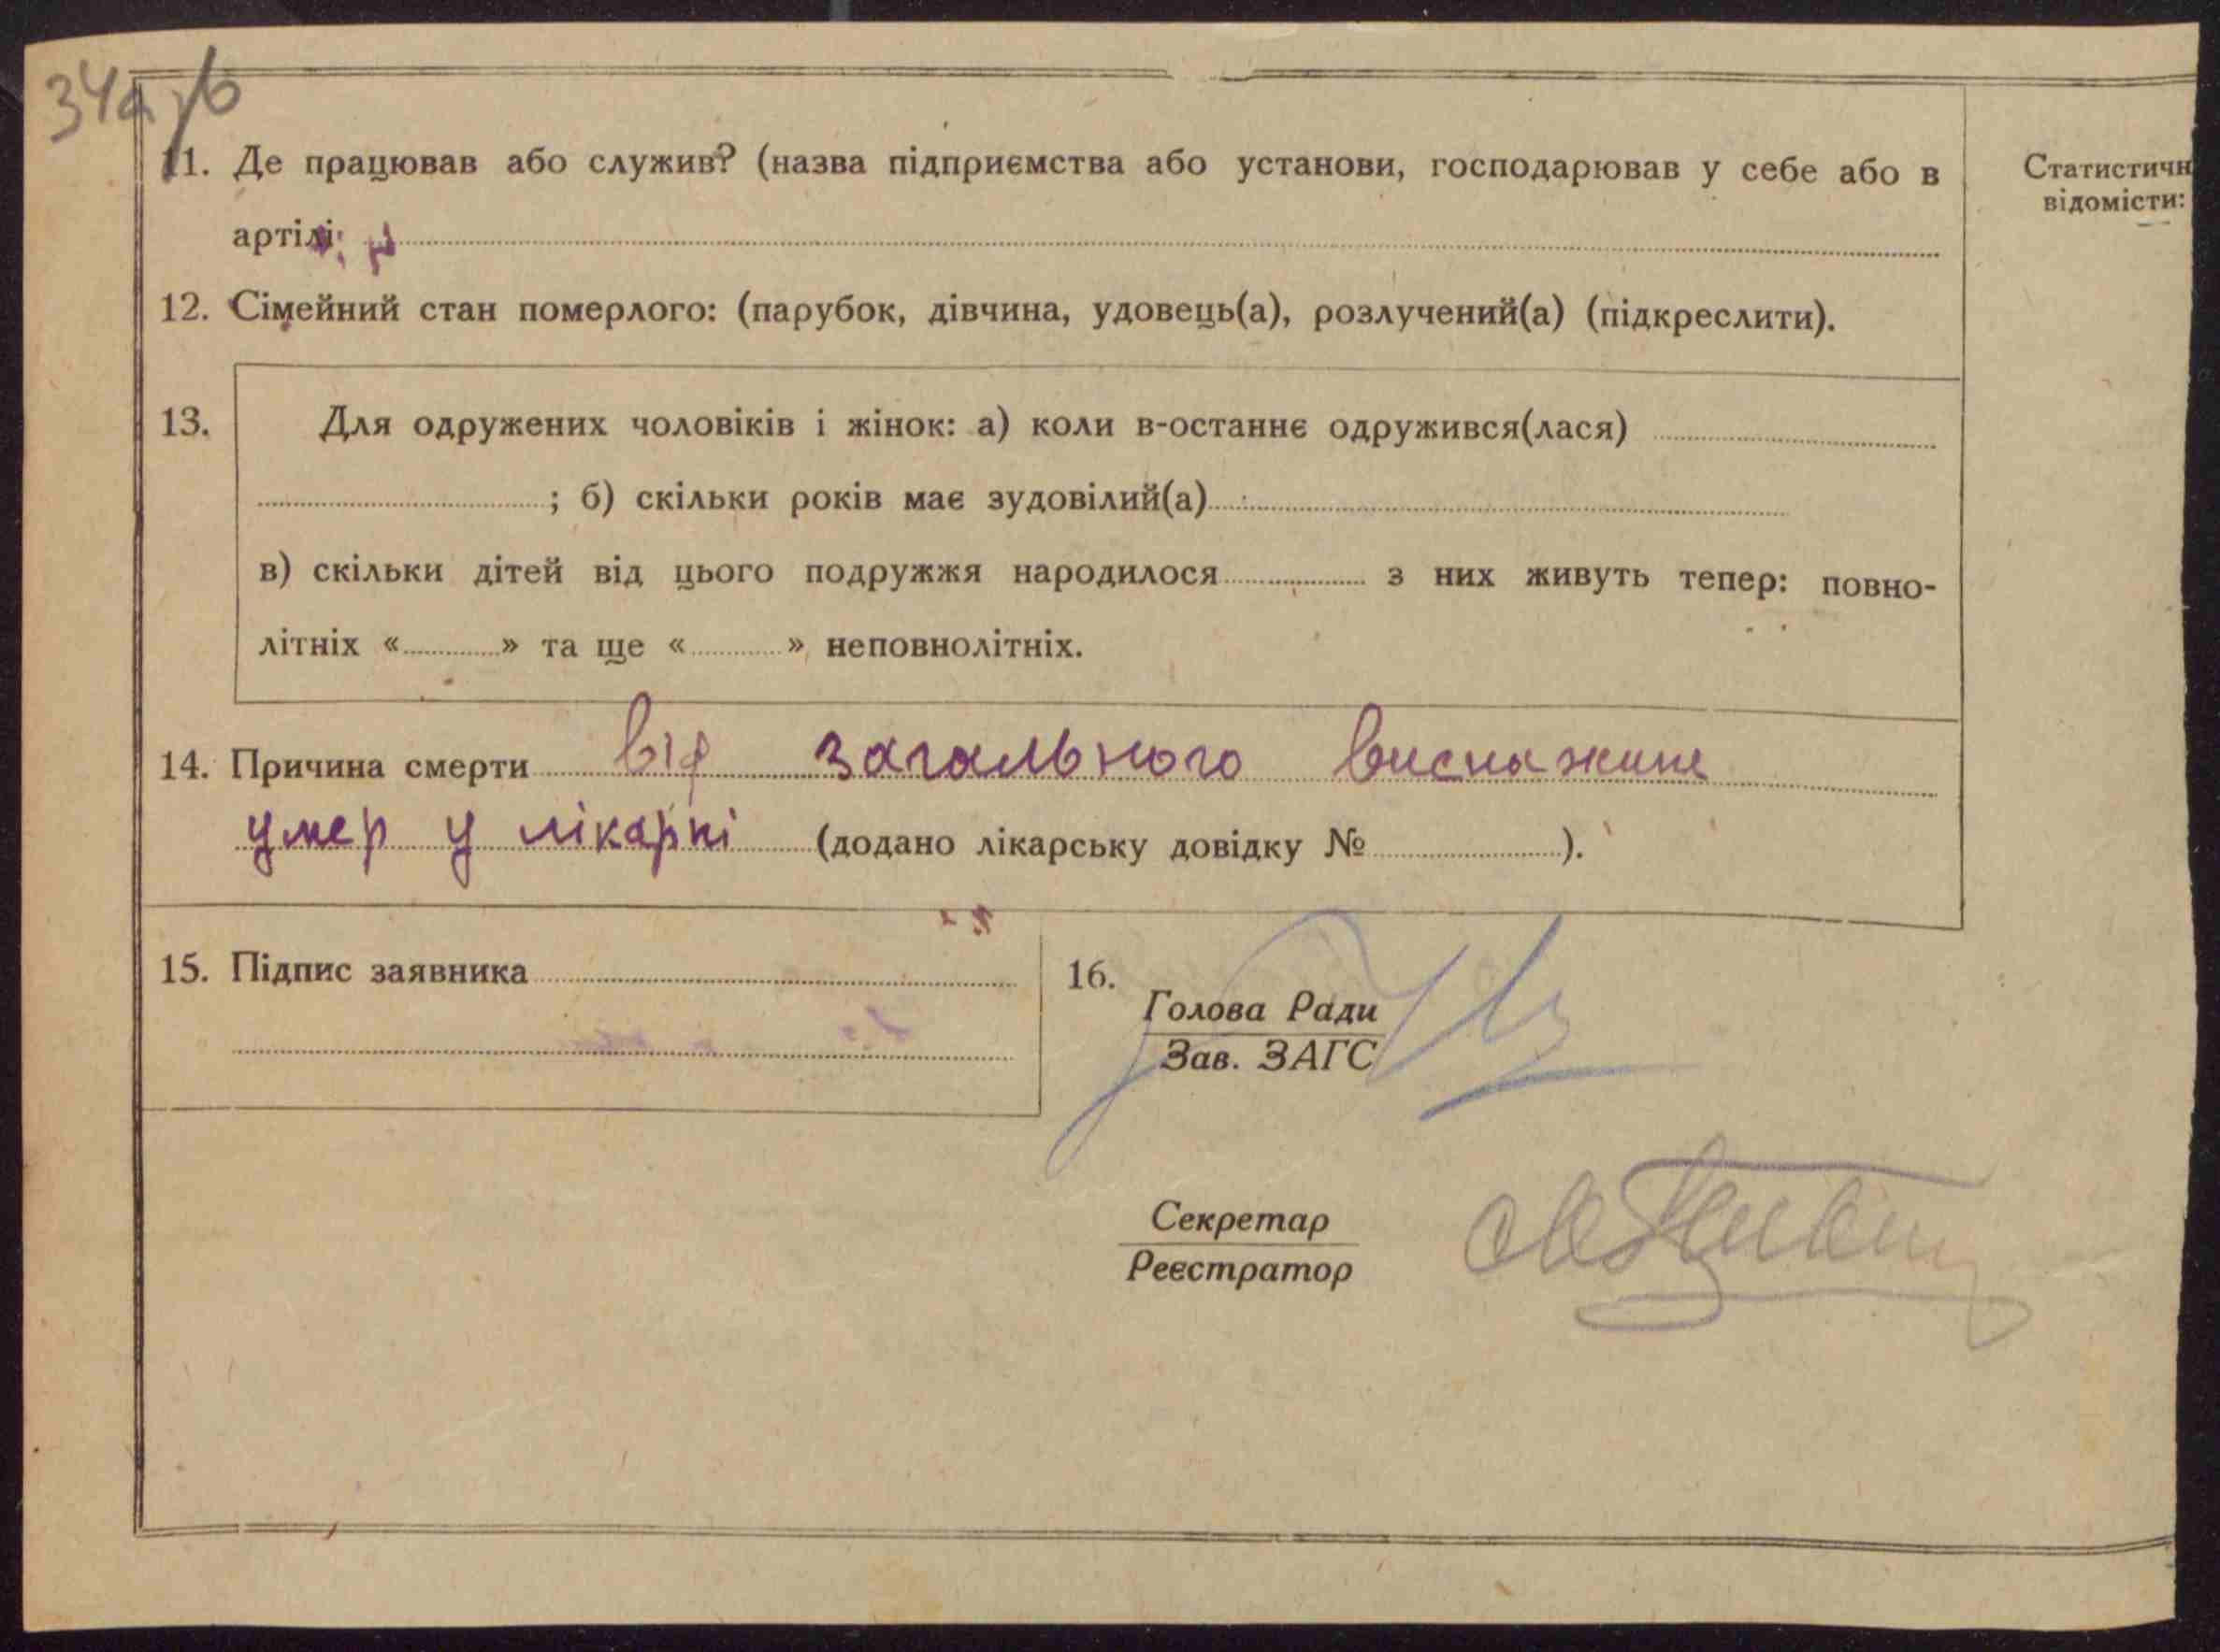 34
11. Де працював або служив? (назва підприємства або установи, господарював у себе або в
артілі
Статистичн
відомісти:
12. Сімейний стан померлого: (парубок, дівчина, удовець(а), розлучений(а) (підкреслити).
13. Для одружених чоловіків і жінок: а) коли в-останнє одружився(лася)
; б) скільки років має зудовілий(а)
в) скільки дітей від цього подружжя народилося з них живуть тепер: повно-
літніх « » та ще « » неповнолітніх.
14. Причина смерти від загального виснажине
умер у лікарні (додано лікарську довідку № ).
15. Підпис заявника
16.
Голова Ради
Зав. ЗАГС
Секретар
Реєстратор